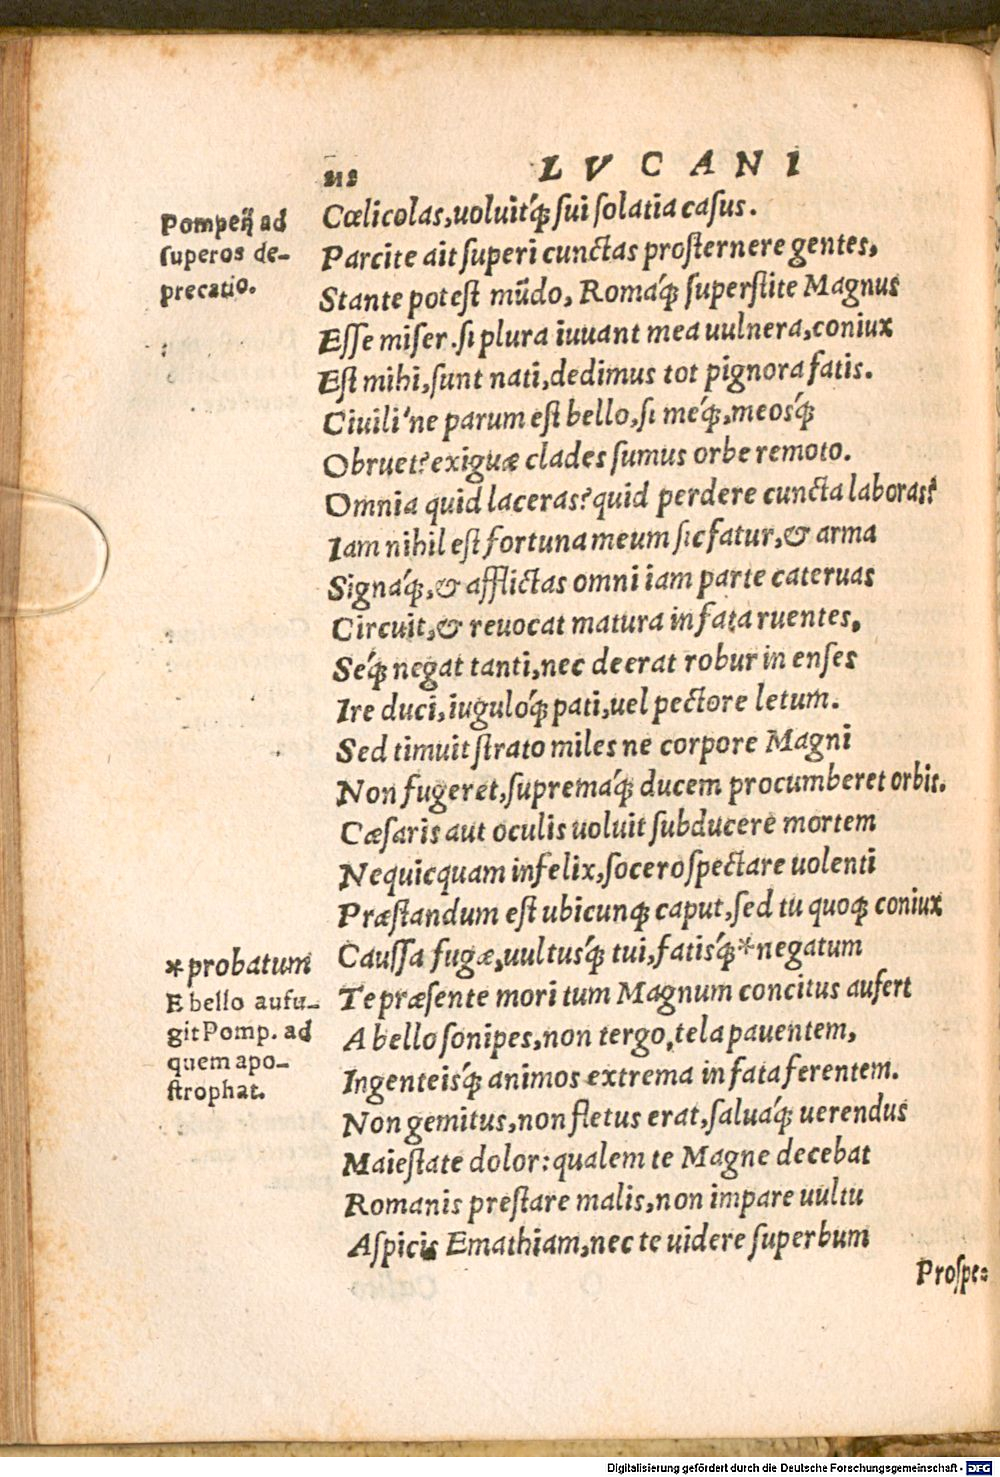 212 LVCANI
Cœlicolas,uoluitq́ꝫ sui solatia casus.
Pompeij ad
superos de-
precatio.
Parcite ait superi cunctas prosternere gentes,
Stante potest mũdo, Romáq́ꝫ superstite Magnus
Esse miser.si plura iuuant mea uulnera,coniux
Est mihi,sunt nati,dedimus tot pignora fatis.
Ciuili'ne parum est bello,si meq́ꝫ,meosq́ꝫ
Obruet?exiguæ clades sumus orbe remoto.
Omnia quid laceras?quid perdere cuncta laboras?
Iam nihil est fortuna meum sic fatur,& arma
Signaq́ꝫ,& afflictas omni iam parte cateruas
Circuit,& reuocat matura in fata ruentes,
Seq́ꝫ negat tanti,nec deerat robur in enses
Ire duci,iuguloq́ꝫ pati,uel pectore letum.
Sed timuit strato miles ne corpore Magni
Non fugeret,supremaq́ꝫ ducem procumberet orbis.
Cæsaris aut oculis uoluit subducere mortem
Nequicquam infelix,socero spectare uolenti
Præstandum est ubicunqꝫ caput,sed tu quoqꝫ coniux
Caussa fugæ,uultusq́ꝫ tui,fatisq́ꝫ*negatum
*probatum
Te præsente mori tum Magnum concitus aufert
E bello aufu-
git Pomp. ad
quem apo-
strophat.
A bello sonipes,non tergo,tela pauentem,
Ingenteisq́ꝫ animos extrema in fata ferentem.
Non gemitus,non fletus erat,saluaq́ꝫ uerendus
Maiestate dolor:qualem te Magne decebat
Romanis prestare malis,non impare uultu
Aspicis Emathiam,nec te uidere superbum
Prospe-
Digitalisierung gefördert durch die Deutsche Forschungsgemeinschaft - DFG